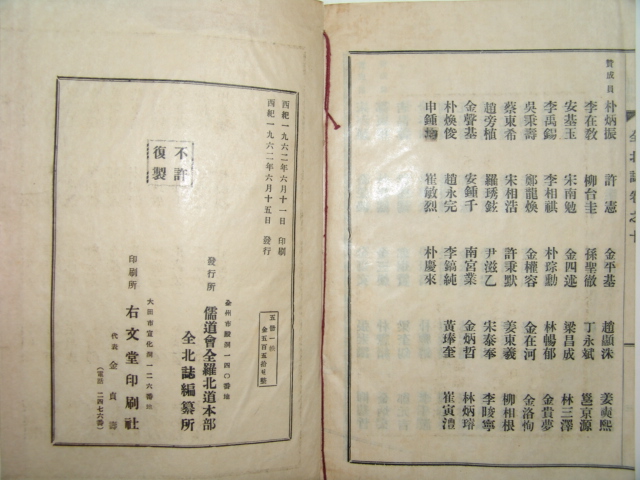 全北誌卷之十
贊成員
朴炳振 許憲 金平基 趙顯洙 姜奭熙
李在敎 柳台圭 孫聖徹 丁永斌 邕京源
安基玉 宋南勉 金四述 梁昌成 林三澤
李禹錫 李相祺 朴琮勳 林暢郁 金貴夢
吳秉壽 鄭龍煥 金權容 金在河 金洛恂
蔡東希 宋相浩 許秉默 姜東羲 柳相根
趙旁植 羅琇鉉 尹滋乙 宋泰奉 李晙寧
金聲基 安鍾千 南宮業 金炳哲 林炳瑢
朴煥俊 趙永完 李鎬純 黃琫奎 崔寅澧
申鍾 崔敏烈 朴慶來
西紀一九六二年六月十一日 印刷
西紀一九六二年六月十五日 發行
不許
復製
發行所
全州市 洞一四〇番地
儒道會全羅北道本部
全北誌編纂所
印刷所
大田市宣化洞一二六番地
右文堂印刷社
代表 金貞壽
(電話 二四七六番)